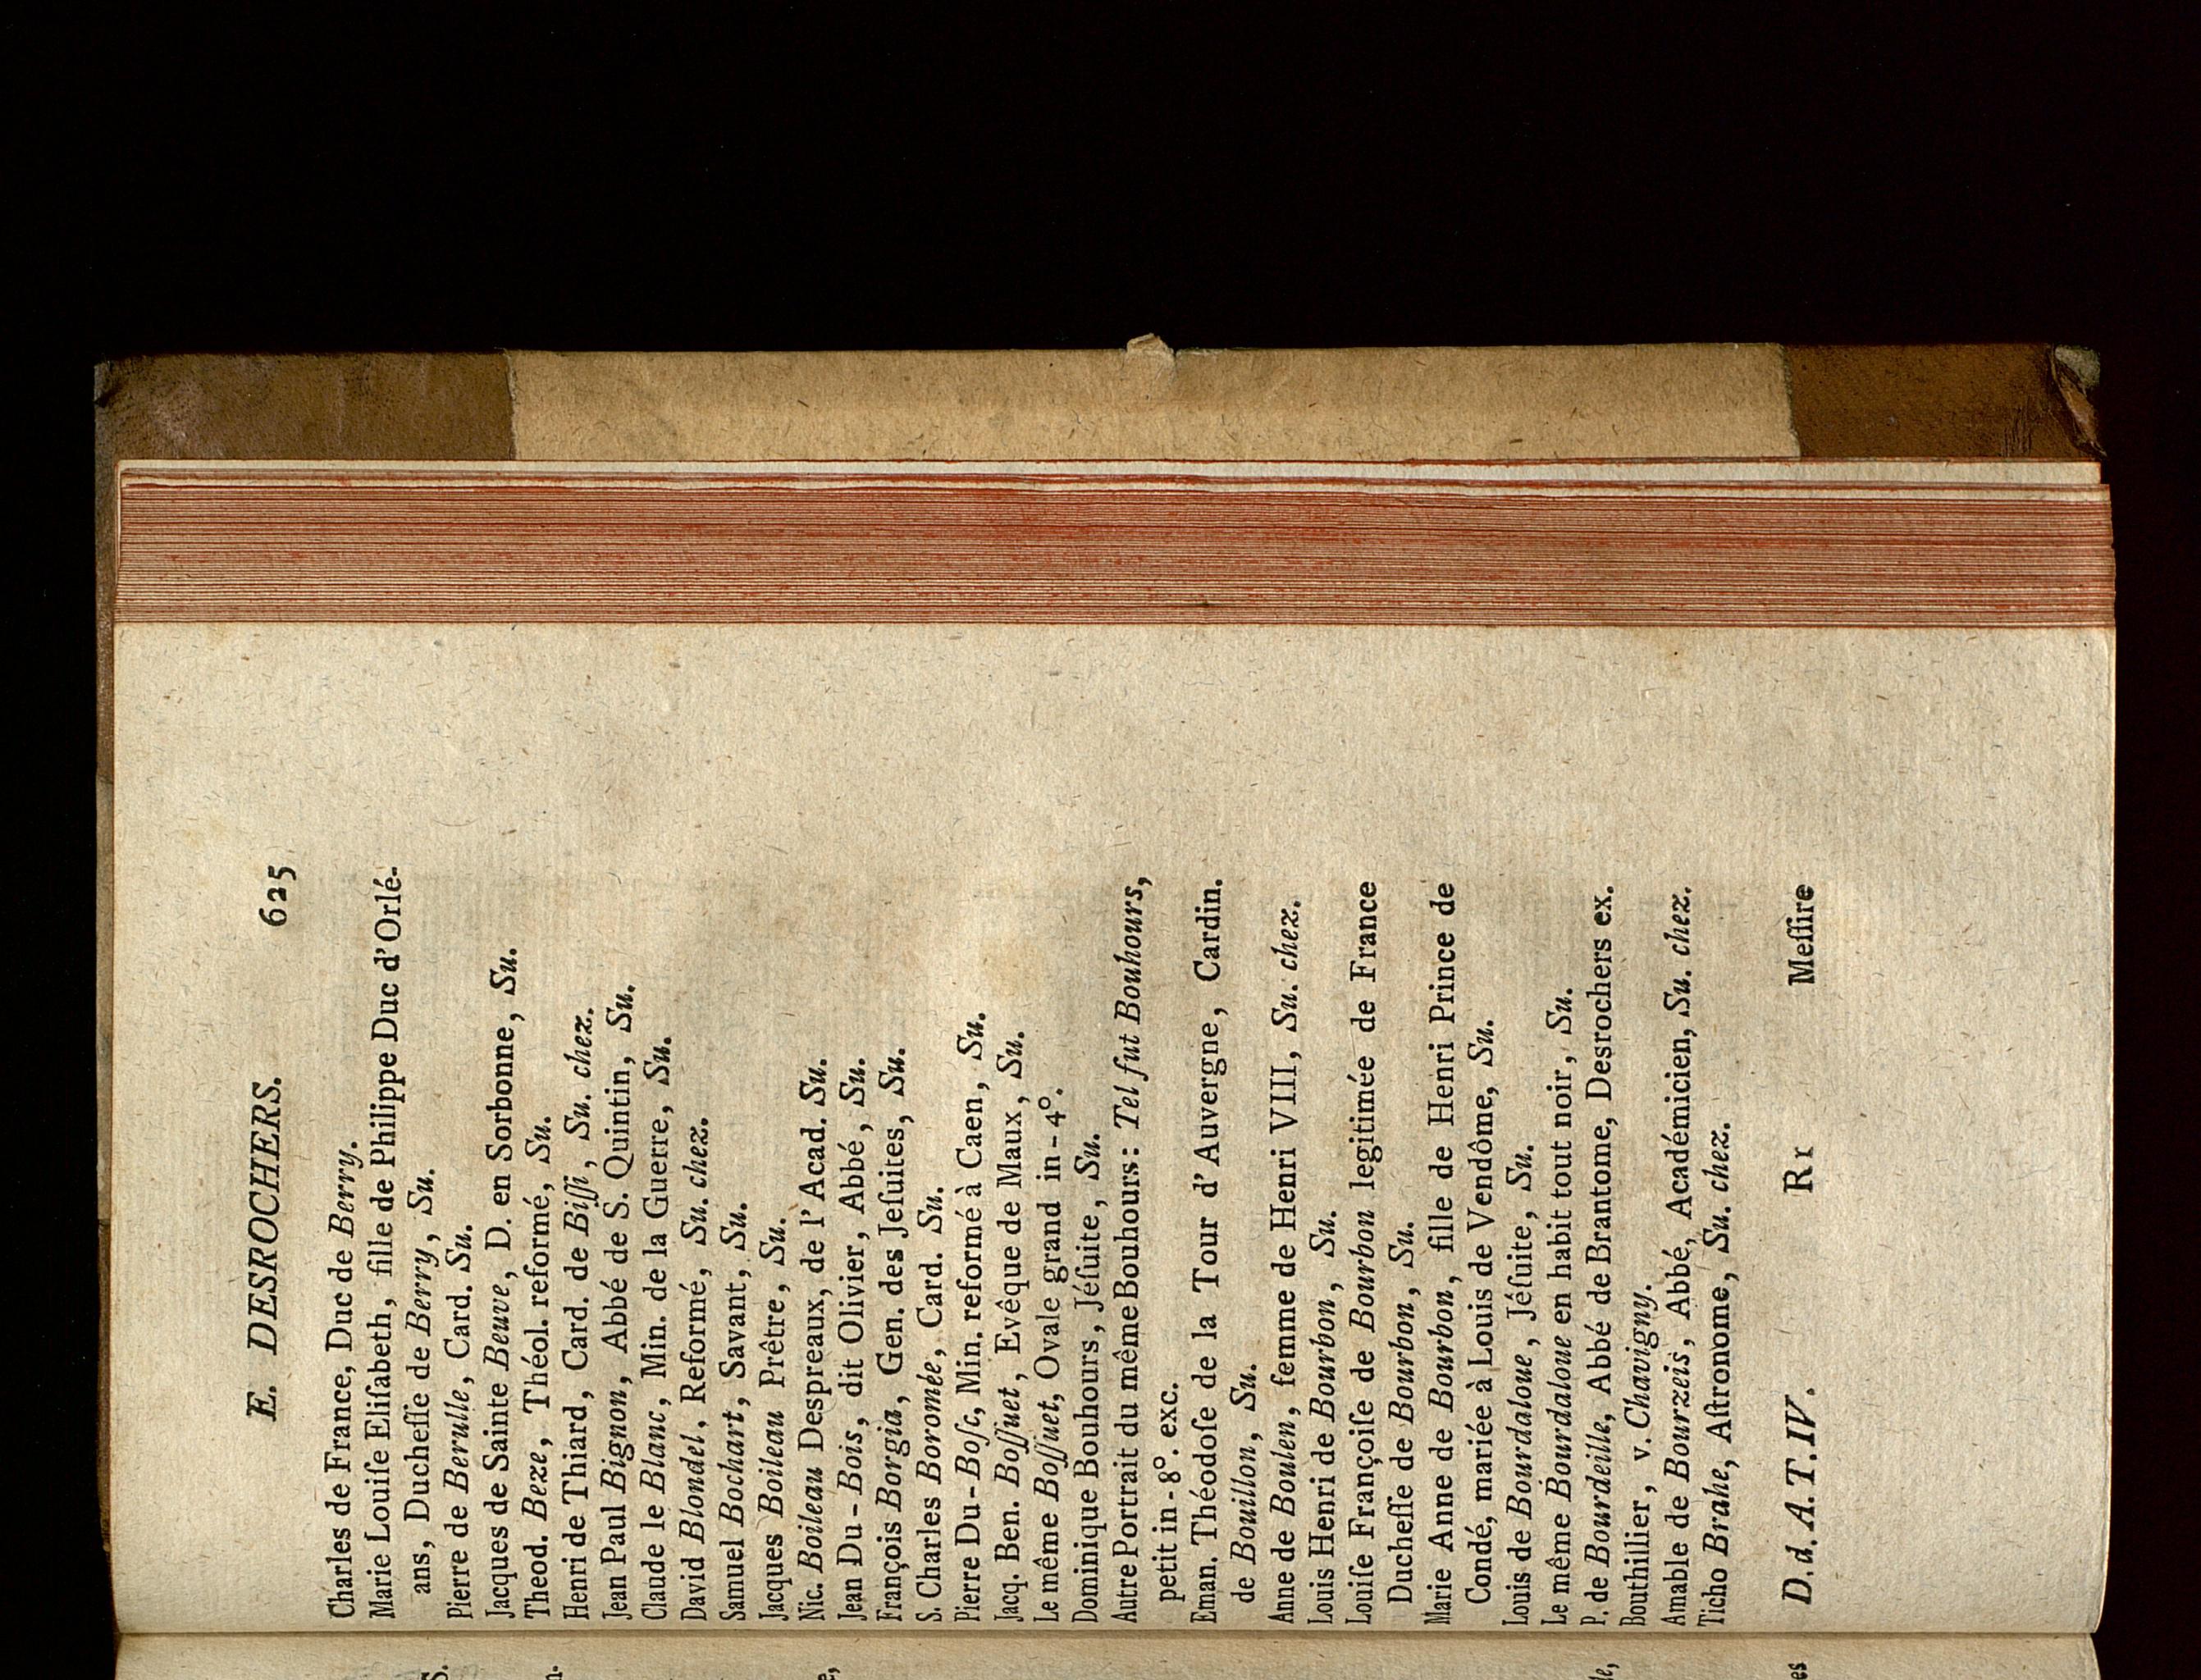 E. DESROCHERS. 625
Charles de France, Duc de Berry.
Marie Louiſe Eliſabeth, fille de Philippe Duc d'Orlé-
ans, Ducheſſe de Berry, Su.
Pierre de Berulle, Card. Su.
Jacques de Sainte Beuve, D. en Sorbonne, Su.
Theod. Beze, Théol. reformé, Su.
Henri de Thiard, Card. de Biſſi, Su. chez.
Jean Paul Bignon, Abbé de S. Quintin, Su.
Claude le Blanc, Min. de la Guerre, Su.
David Blondel, Reformé, Su. chez.
Samuel Bochart, Savant, Su.
Jacques Boileau Prêtre, Su.
Nic. Boileau Despreaux, de l'Acad. Su.
Jean Du-Bois, dit Olivier, Abbé, Su.
François Borgia, Gen. des Jeſuites, Su.
S. Charles Boromée, Card. Su.
Pierre Du-Boſc, Min. reformé à Caen, Su.
Jacq. Ben. Boſſuet, Evêque de Maux, Su.
Le même Boſſuet, Ovale grand in-4°.
Dominique Bouhours, Jéſuite, Su.
Autre Portrait du même Bouhours: Tel fut Bouhours,
petit in-8°. exc.
Eman. Théodoſe de la Tour d'Auvergne, Cardin.
de Bouillon, Su.
Anne de Boulen, femme de Henri VIII, Su. chez.
Louis Henri de Bourbon, Su.
Louiſe Françoiſe de Bourbon legitimée de France
Ducheſſe de Bourbon, Su.
Marie Anne de Bourbon, fille de Henri Prince de
Condé, mariée à Louis de Vendôme, Su.
Louis de Bourdaloue, Jéſuite, Su.
Le même Bourdaloue en habit tout noir, Su.
P. de Bourdeille, Abbé de Brantome, Desrochers ex.
Bouthillier, v. Chavigny.
Amable de Bourzeis, Abbé, Académicien, Su. chez.
Ticho Brahe, Aſtronome, Su. chez.
D. d. A. T. IV. Rr Meſſire